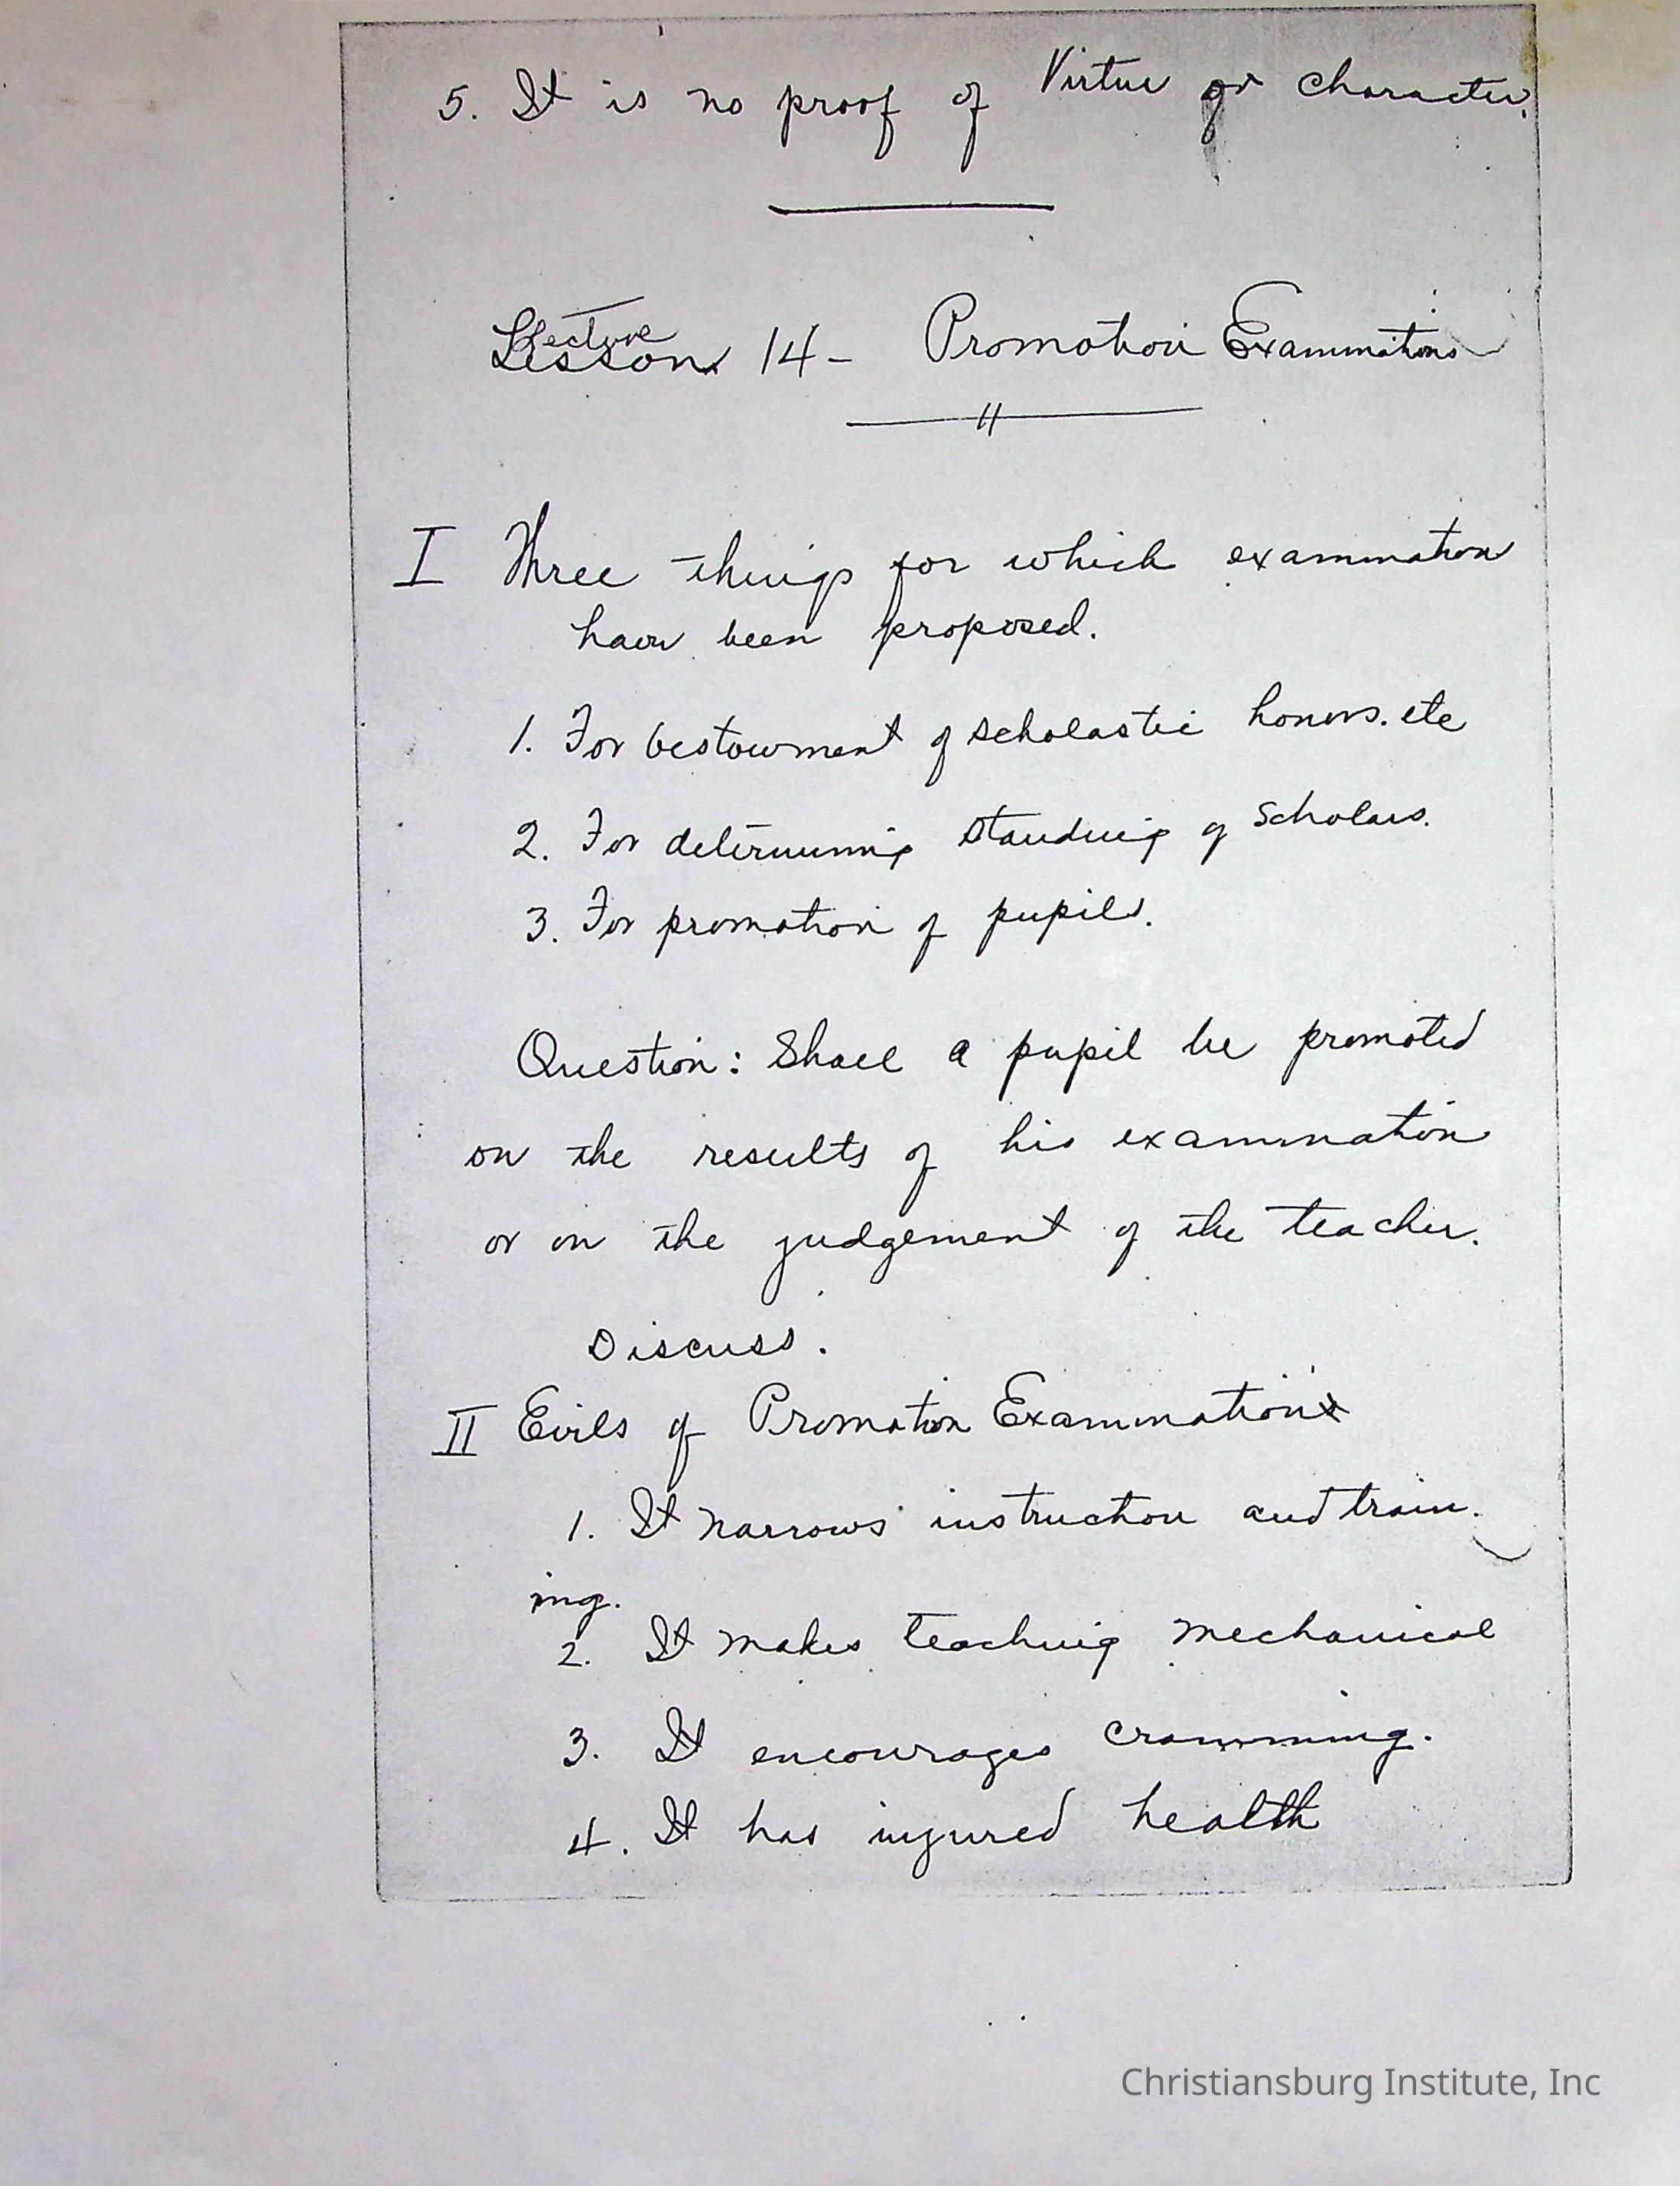 5. It is no proof of Virtue or character.
Lecture
Lesson 14- Promotion Examinations
I Three things for which examination
have been proposed.
1. For bestowment of scholastic honors. etc
2. For determining standing of scholars.
3. For promotion of pupils.
Question: Shall a pupil be promoted
on the results of his examination
or on the judgement of the teacher.
Discuss.
II Evils of Promotion Examinations
1. It narrows instruction and train.
ing.
2. It makes teaching mechanical
3. It encourages cramming.
4. It has injured health
Christiansburg Institute, Inc